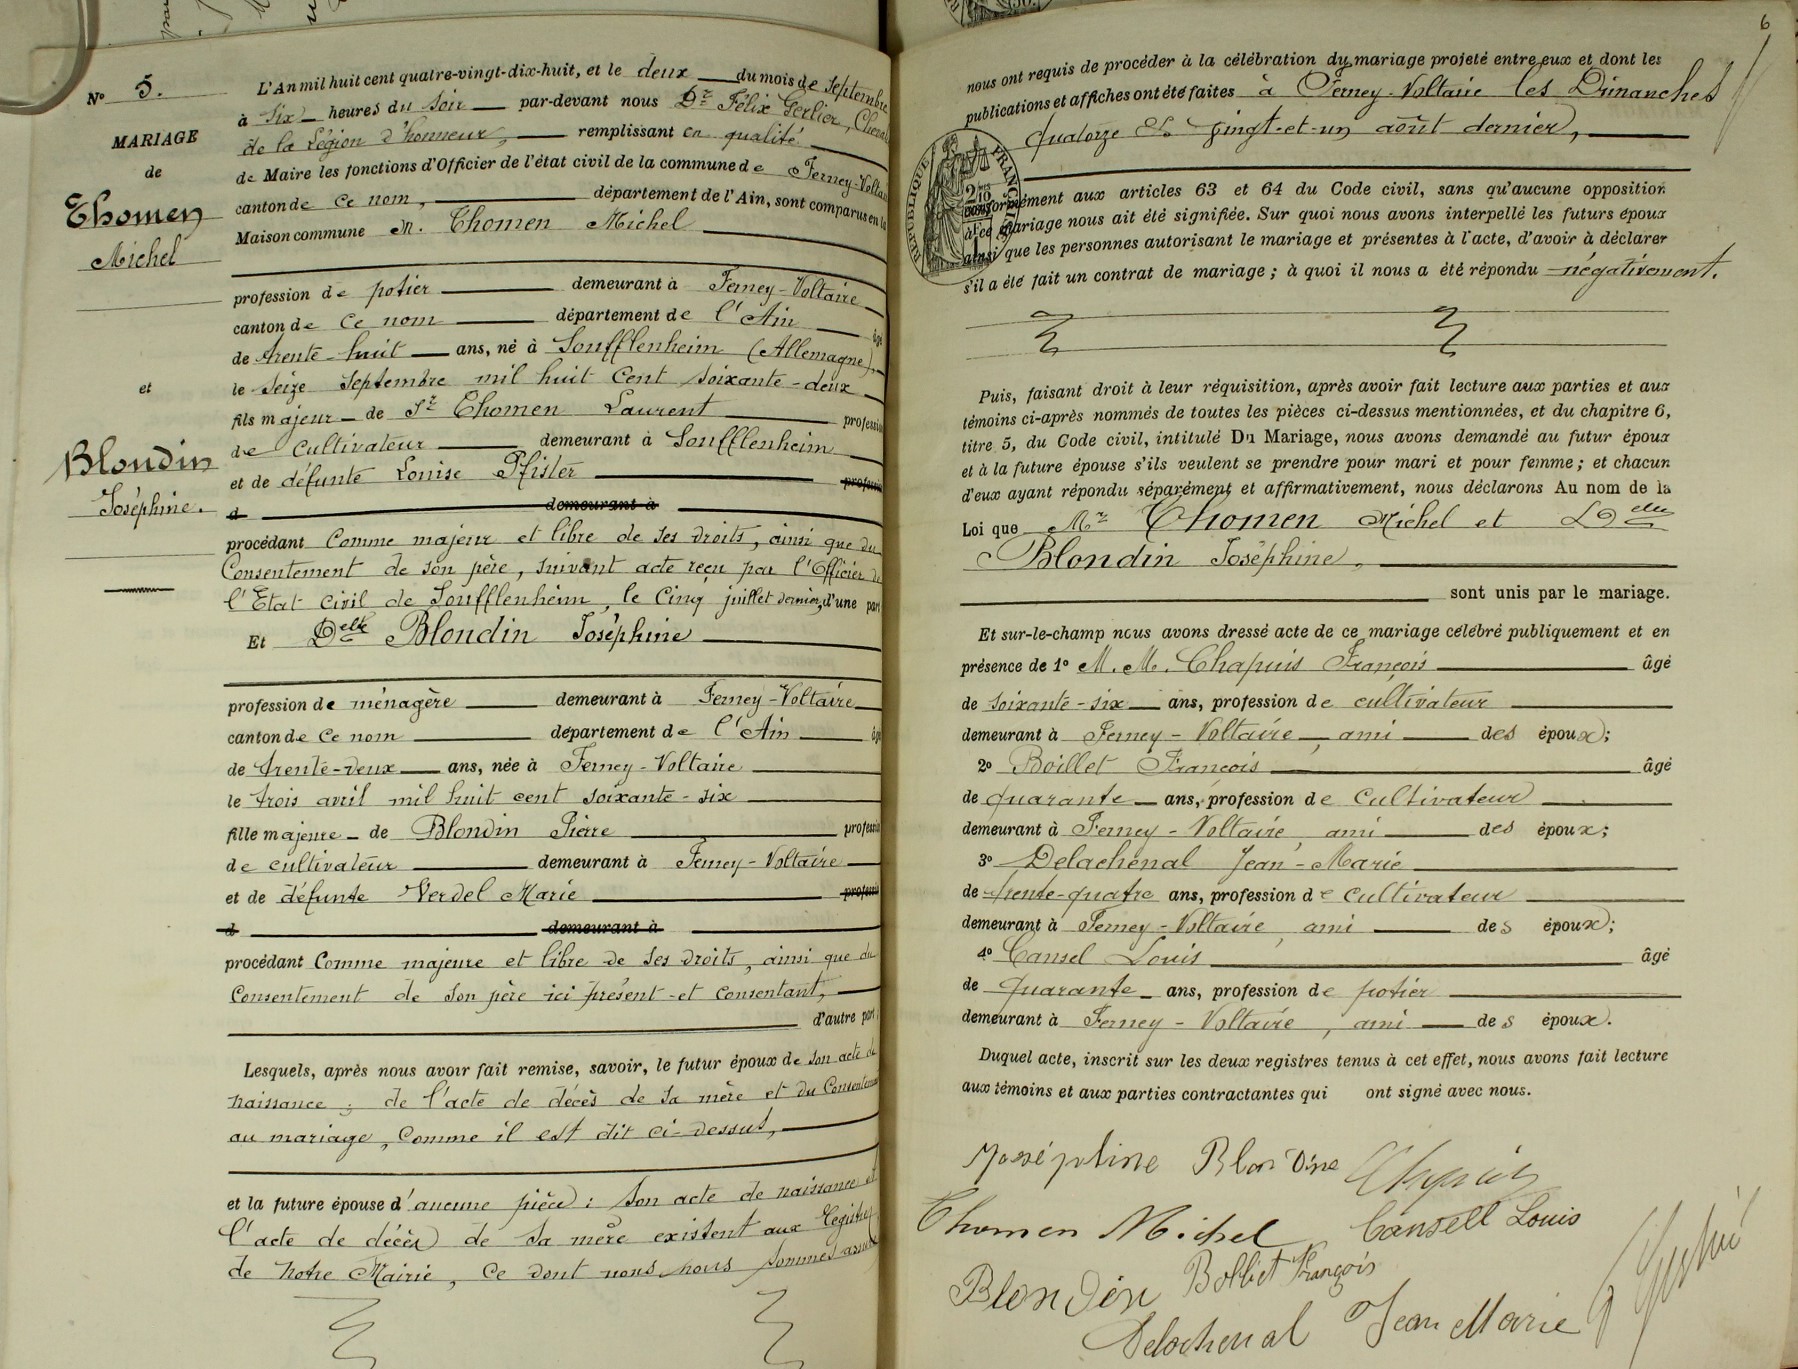 N° 5.
MARIAGE
de
Thomen
Michel
et
Blondin
Joséphine.
L'An mil huit cent quatre-vingt-dix-huit, et le deux du mois de Septembre
à six heures du soir par-devant nous Dr Félix Gerlier, Cheval
de la Légion d'honneur, remplissant en qualité
de Maire les fonctions d'Officier de l'état civil de la commune de Ferney-Voltai
canton de ce nom, département de l'Ain, sont comparus en la
Maison commune M. Thomen Michel
profession de potier demeurant à Ferney-Voltaire
canton de ce nom département de l'Ain âgé
de trente-huit ans, né à Soufflenheim (Allemagne),
le seize Septembre mil huit cent soixante-deux
fils majeur de Sr Thomen Laurent profession
de Cultivateur demeurant à Soufflenheim
et de défunte Louise Pfister profession
d demeurant à
procédant Comme majeur et libre de ses droits, ainsi que du
Consentement de son père, suivant acte reçu par l'Officier de
l'Etat civil de Soufflenheim, le Cinq juillet dernier, d'une part
Et Delle Blondin Joséphine
profession de ménagère demeurant à Ferney-Voltaire
canton de ce nom département de l'Ain âgé
de trente-deux ans, née à Ferney-Voltaire
le trois avril mil huit cent soixante-six
fille majeure de Blondin Pierre profession
de cultivateur demeurant à Ferney-Voltaire
et de défunte Verdel Marie profession
d demeurant à
procédant Comme majeure et libre de ses droits, ainsi que du
Consentement de son père ici présent et consentant,
d'autre part;
Lesquels, après nous avoir fait remise, savoir, le futur époux de son acte de
naissance; de l'acte de décès de sa mère et du Consentement
au mariage, Comme il est dit ci-dessus,
et la future épouse d'aucune pièce: Son acte de naissance et
l'acte de décès de sa mère existent aux Registres
de notre Mairie, ce dont nous nous sommes assuré
6
nous ont requis de procéder à la célébration du mariage projeté entre eux et dont les
publications et affiches ont été faites à Ferney-Voltaire les Dimanches
quatorze et vingt-et-un août dernier,
RÉPUBLIQUE FRANÇAISE
conformément aux articles 63 et 64 du Code civil, sans qu'aucune opposition
à ce mariage nous ait été signifiée. Sur quoi nous avons interpellé les futurs époux
ainsi que les personnes autorisant le mariage et présentes à l'acte, d'avoir à déclarer
s'il a été fait un contrat de mariage; à quoi il nous a été répondu négativement.
Puis, faisant droit à leur réquisition, après avoir fait lecture aux parties et aux
témoins ci-après nommés de toutes les pièces ci-dessus mentionnées, et du chapitre 6,
titre 5, du Code civil, intitulé Du Mariage, nous avons demandé au futur époux
et à la future épouse s'ils veulent se prendre pour mari et pour femme; et chacun
d'eux ayant répondu séparément et affirmativement, nous déclarons Au nom de la
Loi que Mr Thomen Michel et Delle
Blondin Joséphine,
sont unis par le mariage.
Et sur-le-champ nous avons dressé acte de ce mariage célébré publiquement et en
présence de 1° M. M. Chapuis François âgé
de soixante-six ans, profession de cultivateur
demeurant à Ferney-Voltaire, ami des époux;
2° Boillet François âgé
de quarante ans, profession de Cultivateur
demeurant à Ferney-Voltaire ami des époux;
3° Delachenal Jean-Marie
de trente-quatre ans, profession de cultivateur
demeurant à Ferney-Voltaire, ami des époux;
4° Cansel Louis âgé
de quarante ans, profession de potier
demeurant à Ferney-Voltaire, ami des époux.
Duquel acte, inscrit sur les deux registres tenus à cet effet, nous avons fait lecture
aux témoins et aux parties contractantes qui ont signé avec nous.
Joséphine Blondine Chapuis
Thomen Michel Cansell Louis
Blondin Bolliet François
Delachenal Jean Marie